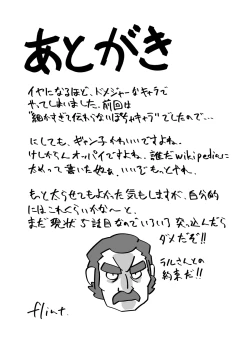 あとがき
イヤになるほど、ドメジャーなキャラで
やってしまいました。前回は
"細かすぎて伝わらないぽちゃキャラ"でしたので…
にしても、ギャン子かわいいですよね。
けしからんオッパイですよね。誰だwikipediaに
ためって書いた奴ぁ、いいぞもっとやれ。
もっと太らせてもよかった気もしますが、自分的
にはこれぐらいかな〜と。
まだ現状5話目なのでいろいろ突っ込んだら
ダメだぞ!!
ラルさんとの
約束だ!!
flint.